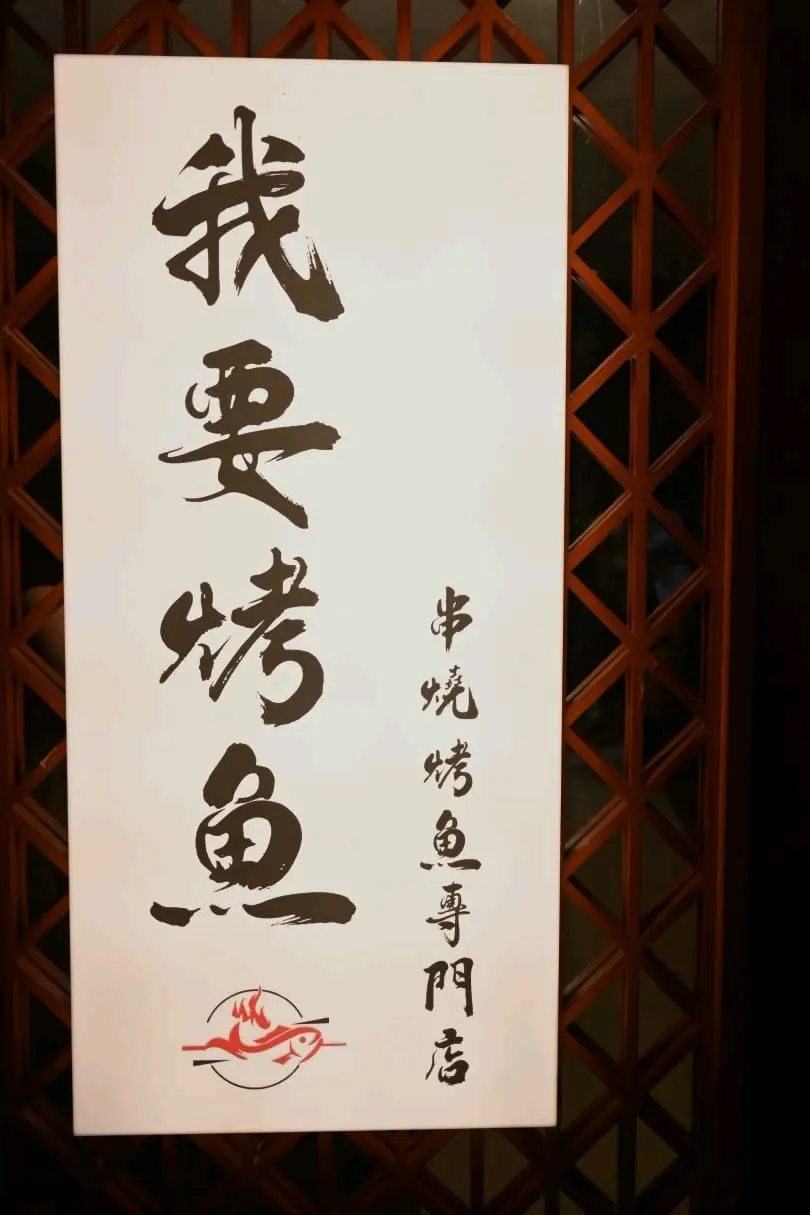 串燒烤魚專門店
我要烤魚